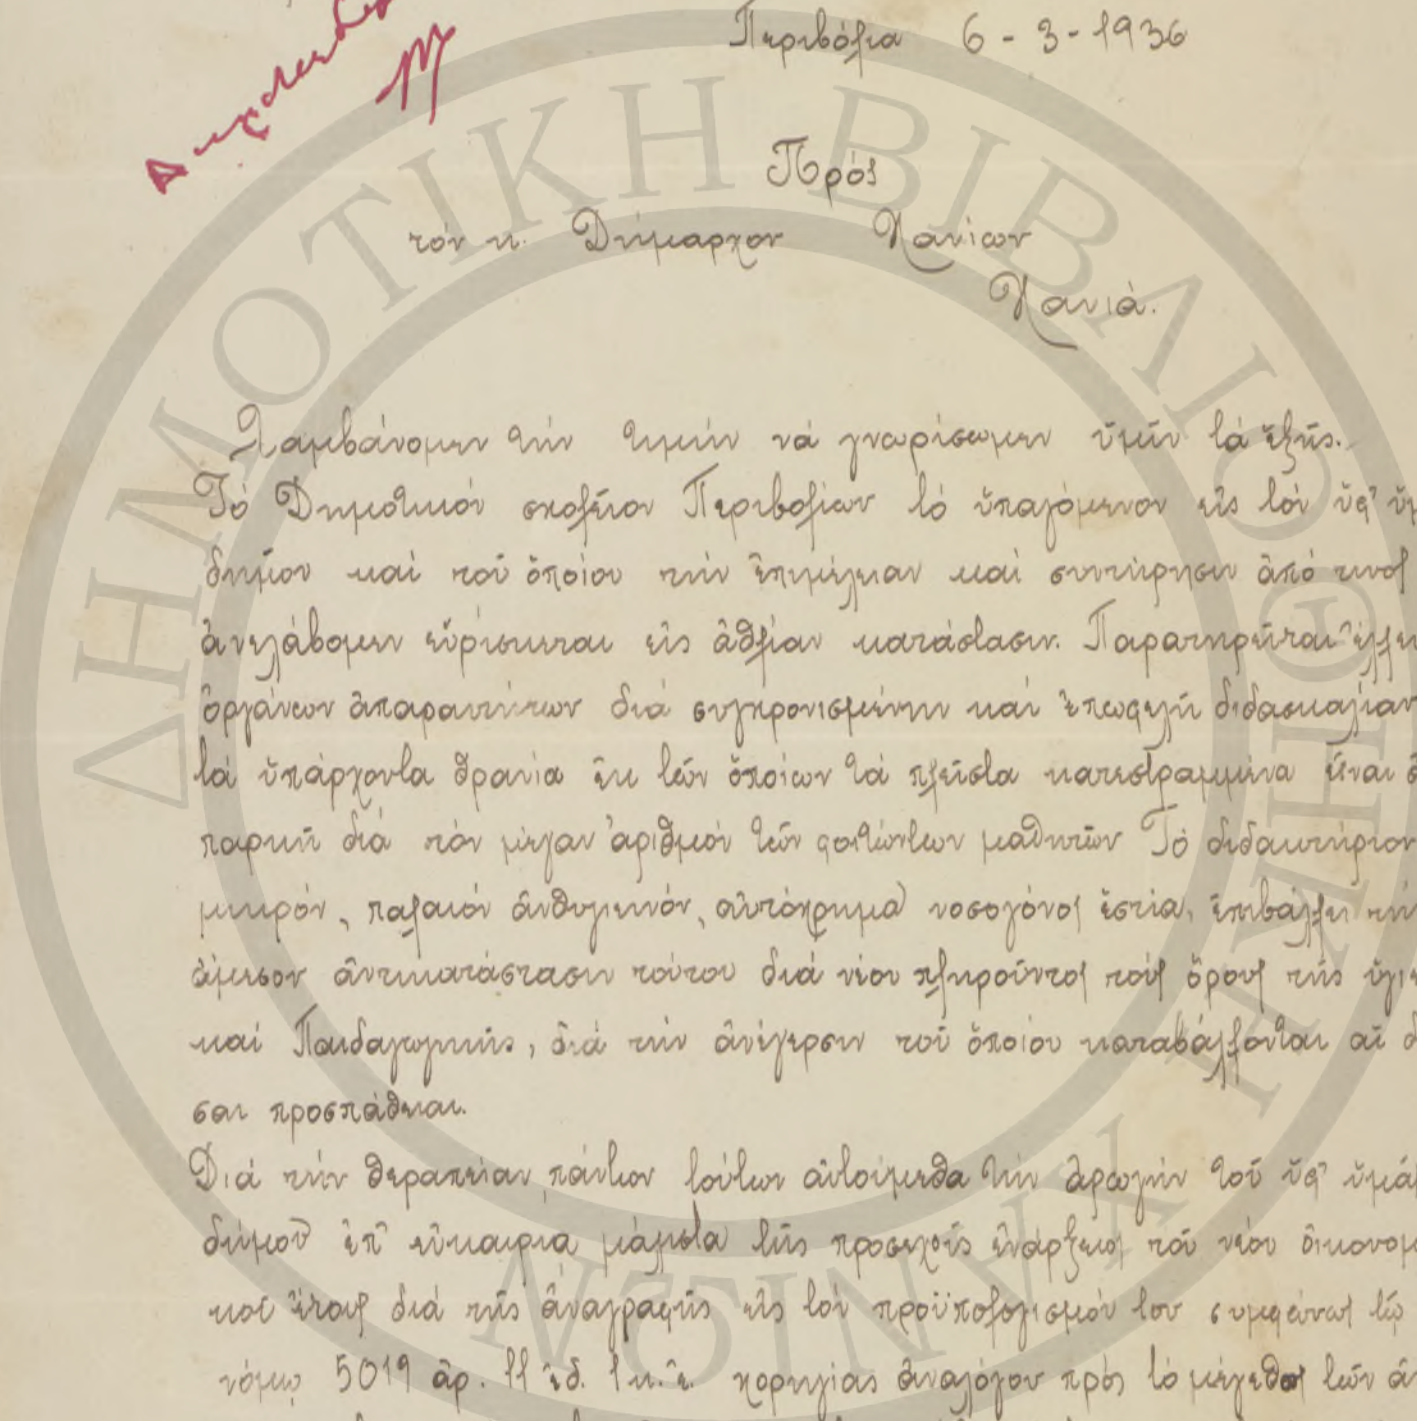 Περιβόλια 6 - 3 - 1936
Πρός
τόν κ. Δήμαρχον Χανίων
Χανιά.
Λαμβάνομεν τήν τιμήν νά γνωρίσωμεν ὑμῖν τά ἑξῆς.
Τό Δημοτικόν σχολεῖον Περιβολίων τό ὑπαγόμενον εἰς τόν ὑφ' ὑμ
δῆμον καί τοῦ ὁποίου τήν ἐπιμέλειαν καί συντήρησιν ἀπό τινος
ἀνελάβομεν εὑρίσκεται εἰς ἀθλίαν κατάστασιν. Παρατηρεῖται ἔλλει
ὀργάνων ἀπαραιτήτων διά συγχρονισμένην καί ἐπωφελῆ διδασκαλίαν
τά ὑπάρχοντα θρανία ἐκ τῶν ὁποίων τά πλεῖστα κατεστραμμένα εἶναι ἀ
παρκῆ διά τόν μέγαν ἀριθμόν τῶν φοιτώντων μαθητῶν Τό διδακτήριον
μικρόν, παλαιόν ἀνθυγιεινόν, αὐτόχρημα νοσογόνος ἑστία, ἐπιβάλλει τήν
ἄμεσον ἀντικατάστασιν τούτου διά νέου πληροῦντος τούς ὅρους τῆς ὑγιε
καί Παιδαγωγικῆς, διά τήν ἀνέγερσιν τοῦ ὁποίου καταβάλλονται αἱ δ
σαι προσπάθειαι.
Διά τήν θεραπείαν πάντων τούτων αἰτούμεθα τήν ἀρωγήν τοῦ ὑφ' ὑμᾶ
δήμου ἐπ' εὐκαιρία μάλιστα τῆς προσεχοῦς ἐνάρξεως τοῦ νέου οἰκονομ
κοῦ ἔτους διά τῆς ἀναγραφῆς εἰς τόν προϋπολογισμόν του συμφώνως τῷ
νόμῳ 5019 ἀρ. 11 ἐδ. 1 κ. ἑ. χορηγίας ἀναλόγου πρός τό μέγεθος τῶν ἀ
ΔΗΜΟΤΙΚΗ ΒΙΒΛΙΟΘΗΚΗ ΧΑΝΙΩΝ